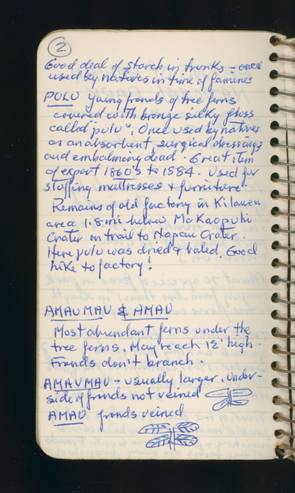 2
Good deal of starch in trunks – once
used by natives in time of famines
PULU young fronds of tree ferns
covered with bronze silky floss
called "pulu". Once used by natives
as an absorbent, surgical dressings
and embalming dead. Great item
of export 1860's to 1884. Used for
stuffing mattresses & furniture.
Remains of old factory in Kilauea
area 1.8 mi below Makaopuhi
Crater on trail to Napau Crater.
Here pulu was dried & baled. Good
hike to factory!
AMAUMAU & AMAU
Most abundant ferns under the
tree ferns. May reach 12' high.
Fronds don't branch.
AMAUMAU – usually larger. Under-
side of fronds not veined
AMAU fronds veined